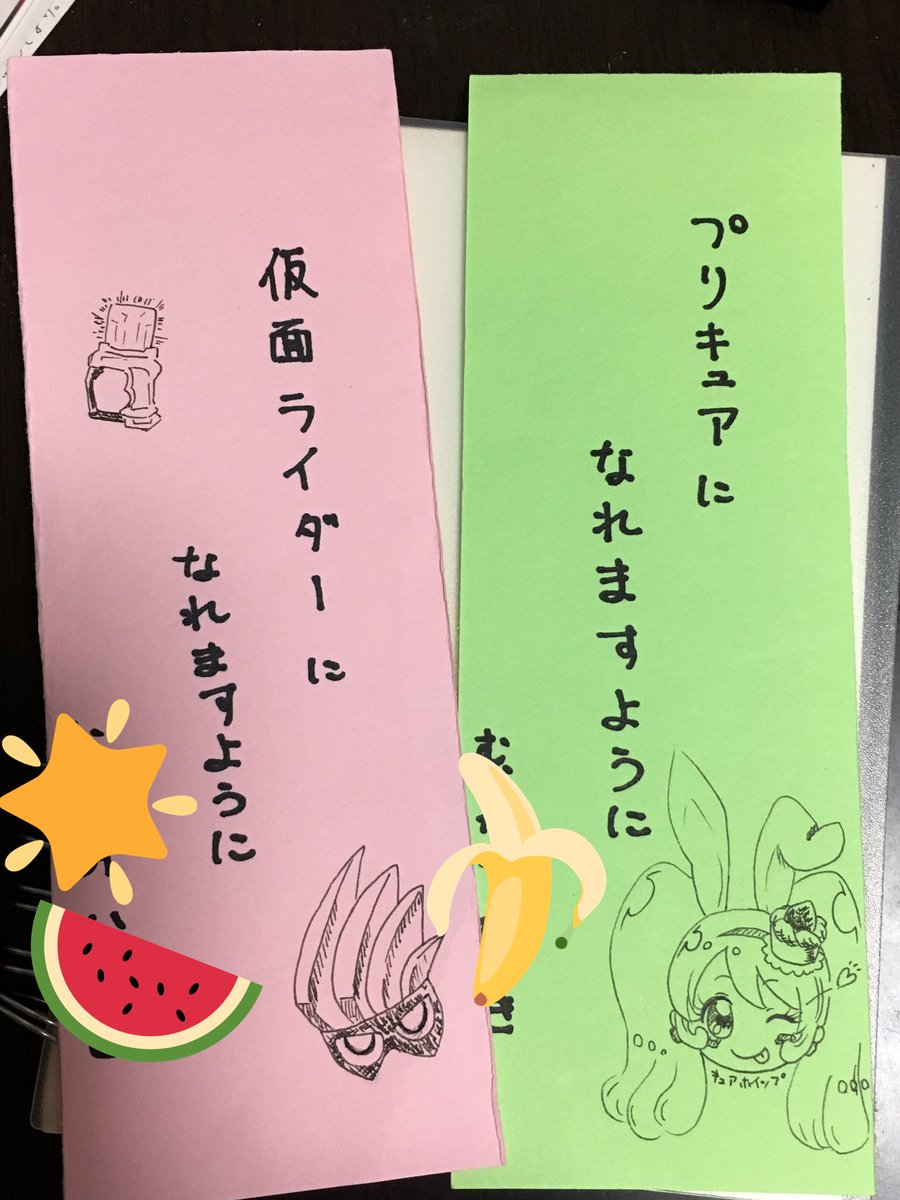 プリキュアに
なれますように
キュアホイップ
仮面ライダーに
なれますように